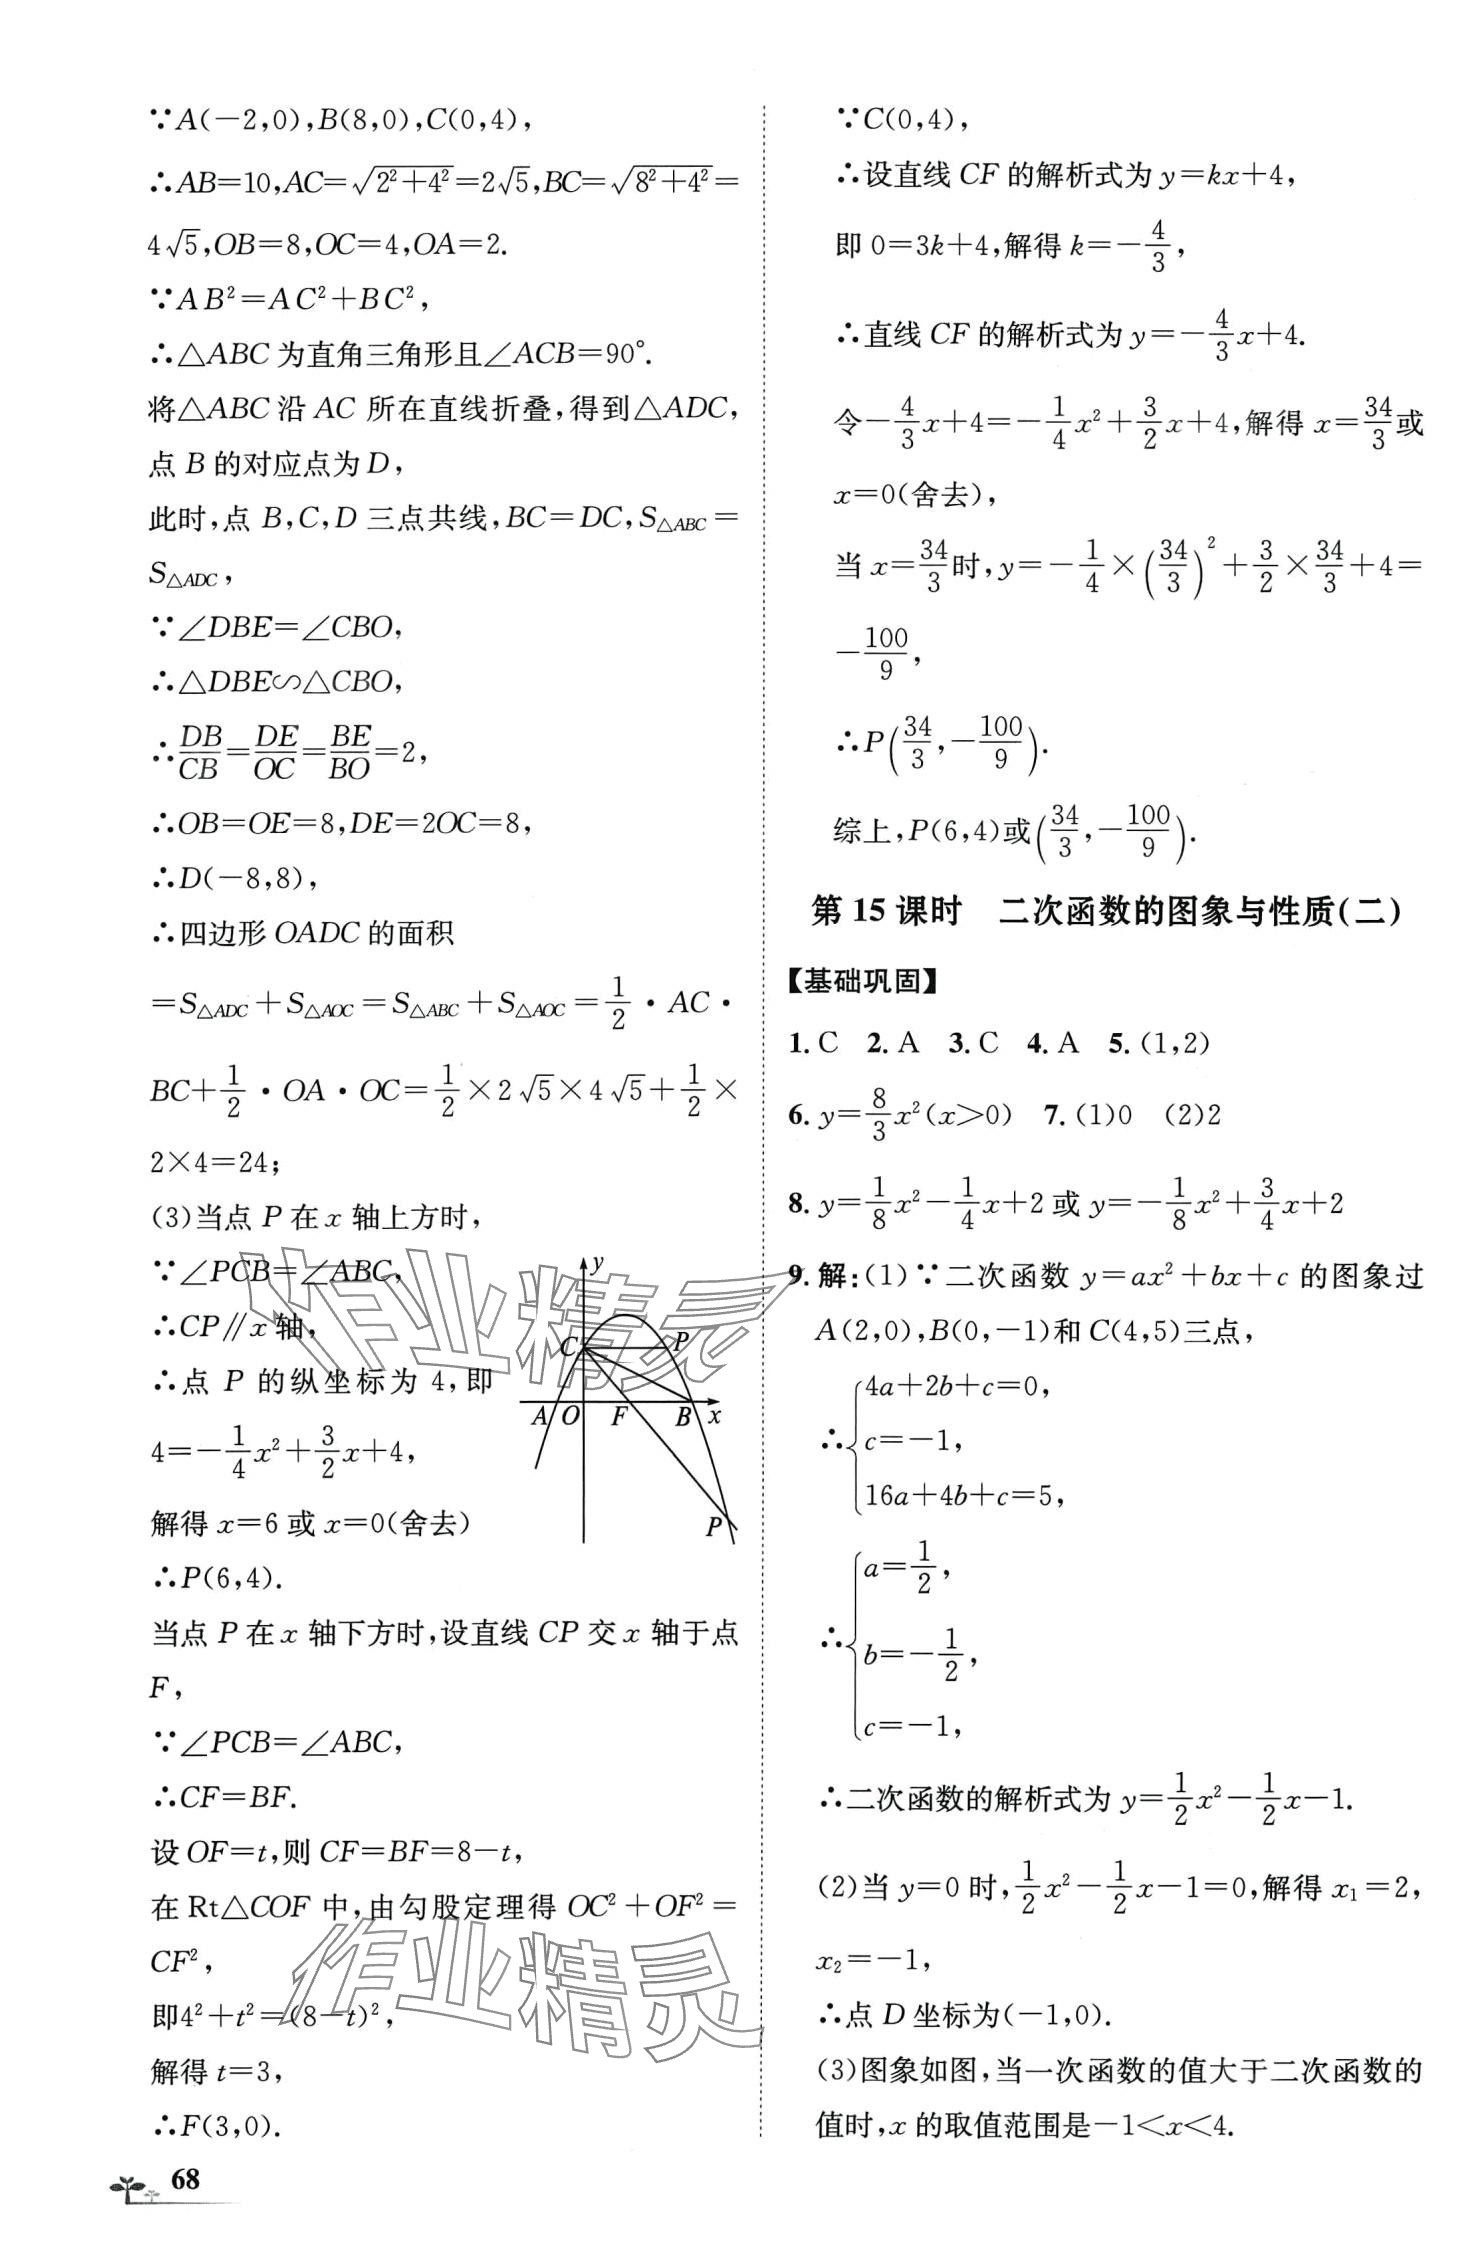 ∵A(−2,0),B(8,0),C(0,4),
∴AB=10,AC=√(2²+4²)=2√5,BC=√(8²+4²)=
4√5,OB=8,OC=4,OA=2.
∵AB²=AC²+BC²,
∴△ABC为直角三角形且∠ACB=90°.
将△ABC沿AC所在直线折叠,得到△ADC,
点B的对应点为D,
此时,点B,C,D三点共线,BC=DC,S△ABC=
S△ADC,
∵∠DBE=∠CBO,
∴△DBE∽△CBO,
∴DB/CB=DE/OC=BE/BO=2,
∴OB=OE=8,DE=2OC=8,
∴D(−8,8),
∴四边形OADC的面积
=S△ADC+S△AOC=S△ABC+S△AOC=1/2·AC·
BC+1/2·OA·OC=1/2×2√5×4√5+1/2×
2×4=24;
(3)当点P在x轴上方时,
∵∠PCB=∠ABC,
∴CP∥x轴,
∴点P的纵坐标为4,即
4=−1/4x²+3/2x+4,
解得x=6或x=0(舍去)
∴P(6,4).
y
C
P
A
O
F
B
x
P
当点P在x轴下方时,设直线CP交x轴于点
F,
∵∠PCB=∠ABC,
∴CF=BF.
设OF=t,则CF=BF=8−t,
在Rt△COF中,由勾股定理得OC²+OF²=
CF²,
即4²+t²=(8−t)²,
解得t=3,
∴F(3,0).
68
∵C(0,4),
∴设直线CF的解析式为y=kx+4,
即0=3k+4,解得k=−4/3,
∴直线CF的解析式为y=−4/3x+4.
令−4/3x+4=−1/4x²+3/2x+4,解得x=34/3或
x=0(舍去),
当x=34/3时,y=−1/4×(34/3)²+3/2×34/3+4=
−100/9,
∴P(34/3,−100/9).
综上,P(6,4)或(34/3,−100/9).
第15课时 二次函数的图象与性质(二)
【基础巩固】
1.C 2.A 3.C 4.A 5.(1,2)
6.y=8/3x²(x>0) 7.(1)0 (2)2
8.y=1/8x²−1/4x+2或y=−1/8x²+3/4x+2
9.解:(1)∵二次函数y=ax²+bx+c的图象过
A(2,0),B(0,−1)和C(4,5)三点,
∴{4a+2b+c=0,
c=−1,
16a+4b+c=5,
∴{a=1/2,
b=−1/2,
c=−1,
∴二次函数的解析式为y=1/2x²−1/2x−1.
(2)当y=0时,1/2x²−1/2x−1=0,解得x₁=2,
x₂=−1,
∴点D坐标为(−1,0).
(3)图象如图,当一次函数的值大于二次函数的
值时,x的取值范围是−1<x<4.
作业精灵
作业精灵